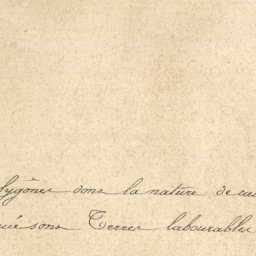 lygônes dans la nature de cu
ué sont Terres labourables